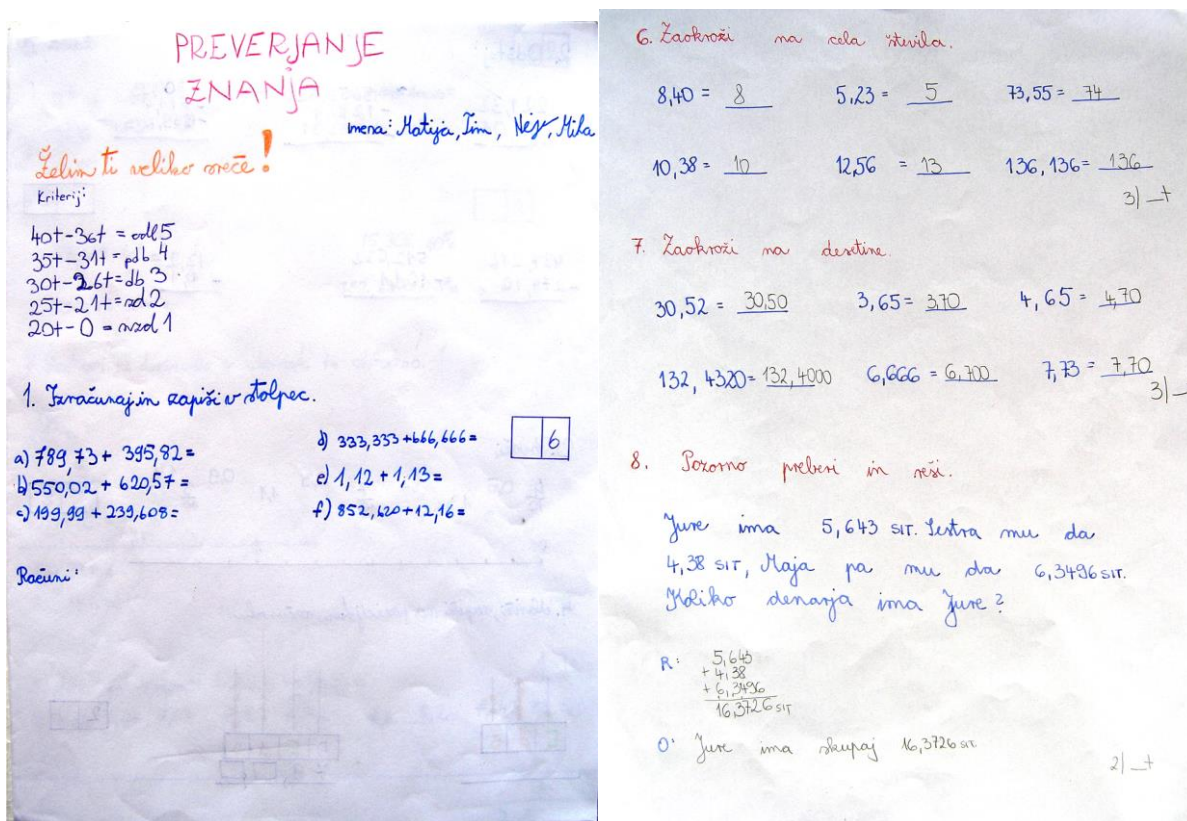 PREVERJANJE
ZNANJA
imena: Matija, Tim, Nejc, Mila
Želim ti veliko sreče!
Kriterij:
40t-36t = odl 5
35t-31t = pdb 4
30t-26t = db 3
25t-21t = zd 2
20t-0 = nzd 1
1. Izračunaj in zapiši v stolpec.
6
a) 789,73 + 395,82 =
d) 333,333 + 666,666 =
b) 550,02 + 620,57 =
e) 1,12 + 1,13 =
c) 199,99 + 239,608 =
f) 852,620 + 12,16 =
Računi:
6. Zaokroži na cela števila.
8,40 = 8 5,23 = 5 73,55 = 74
10,38 = 10 12,56 = 13 136,136 = 136
3| _t
7. Zaokroži na desetine.
30,52 = 30,50 3,65 = 3,70 4,65 = 4,70
132,4320 = 132,4000 6,666 = 6,700 7,73 = 7,70
3| _
8. Pozorno preberi in reši.
Jure ima 5,643 SIT. Sestra mu da
4,38 SIT, Maja pa mu da 6,3496 SIT.
Koliko denarja ima Jure?
R: 5,643
+ 4,38
+ 6,3496
16,3726 SIT
O: Jure ima skupaj 16,3726 SIT
2| _t